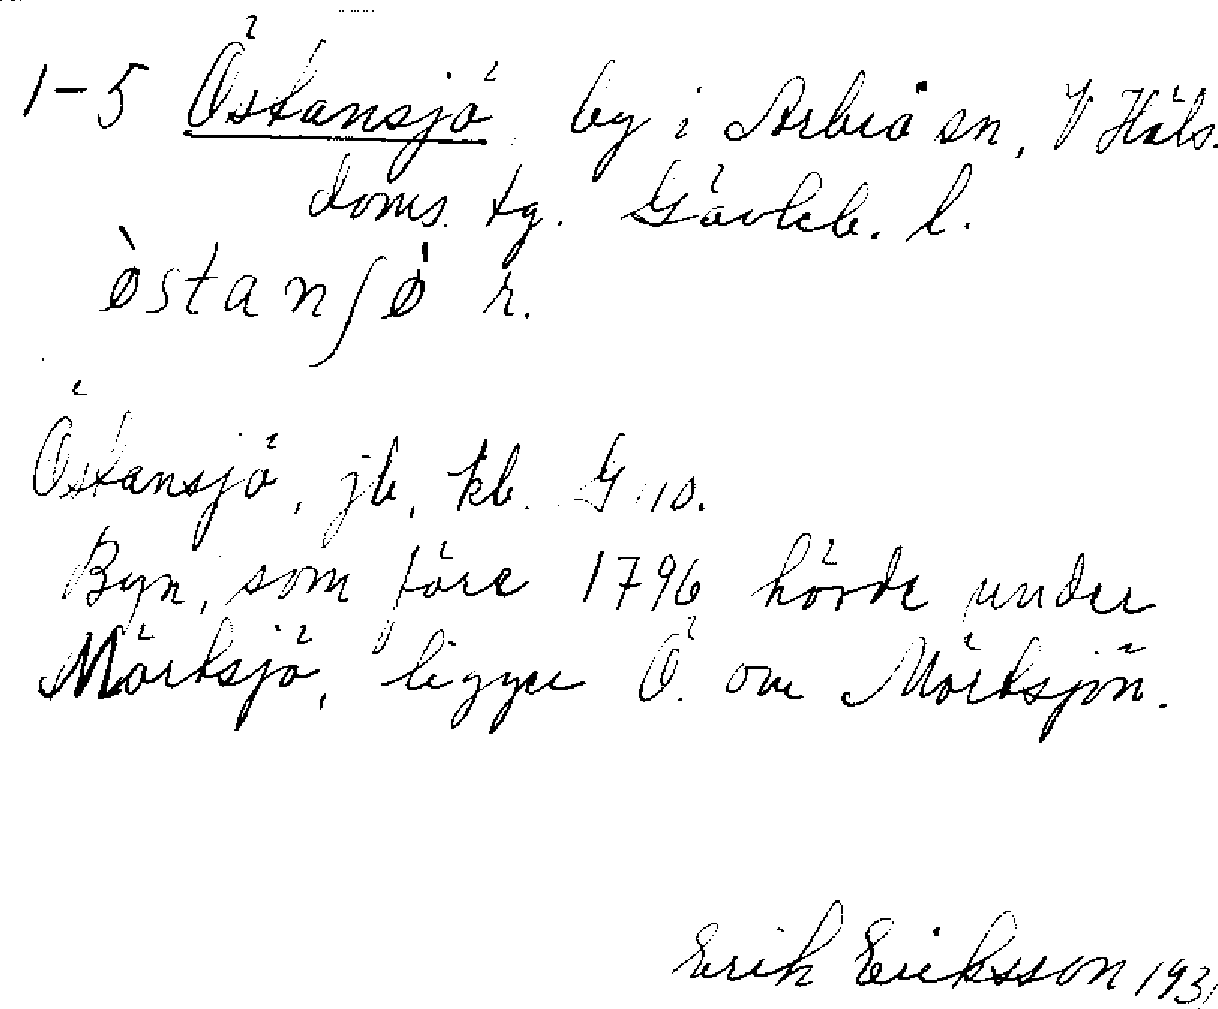 1-5 Östansjö, by i Arbrå sn, V Häls.
doms. tg. Gävleb. l.
ö̀stanʃö̀ r.
Östansjö, jb, kb. G.
Byn, som före 1796 hörde under
Mörtsjö, ligger Ö. om Mörtsjön.
Erik Eriksson